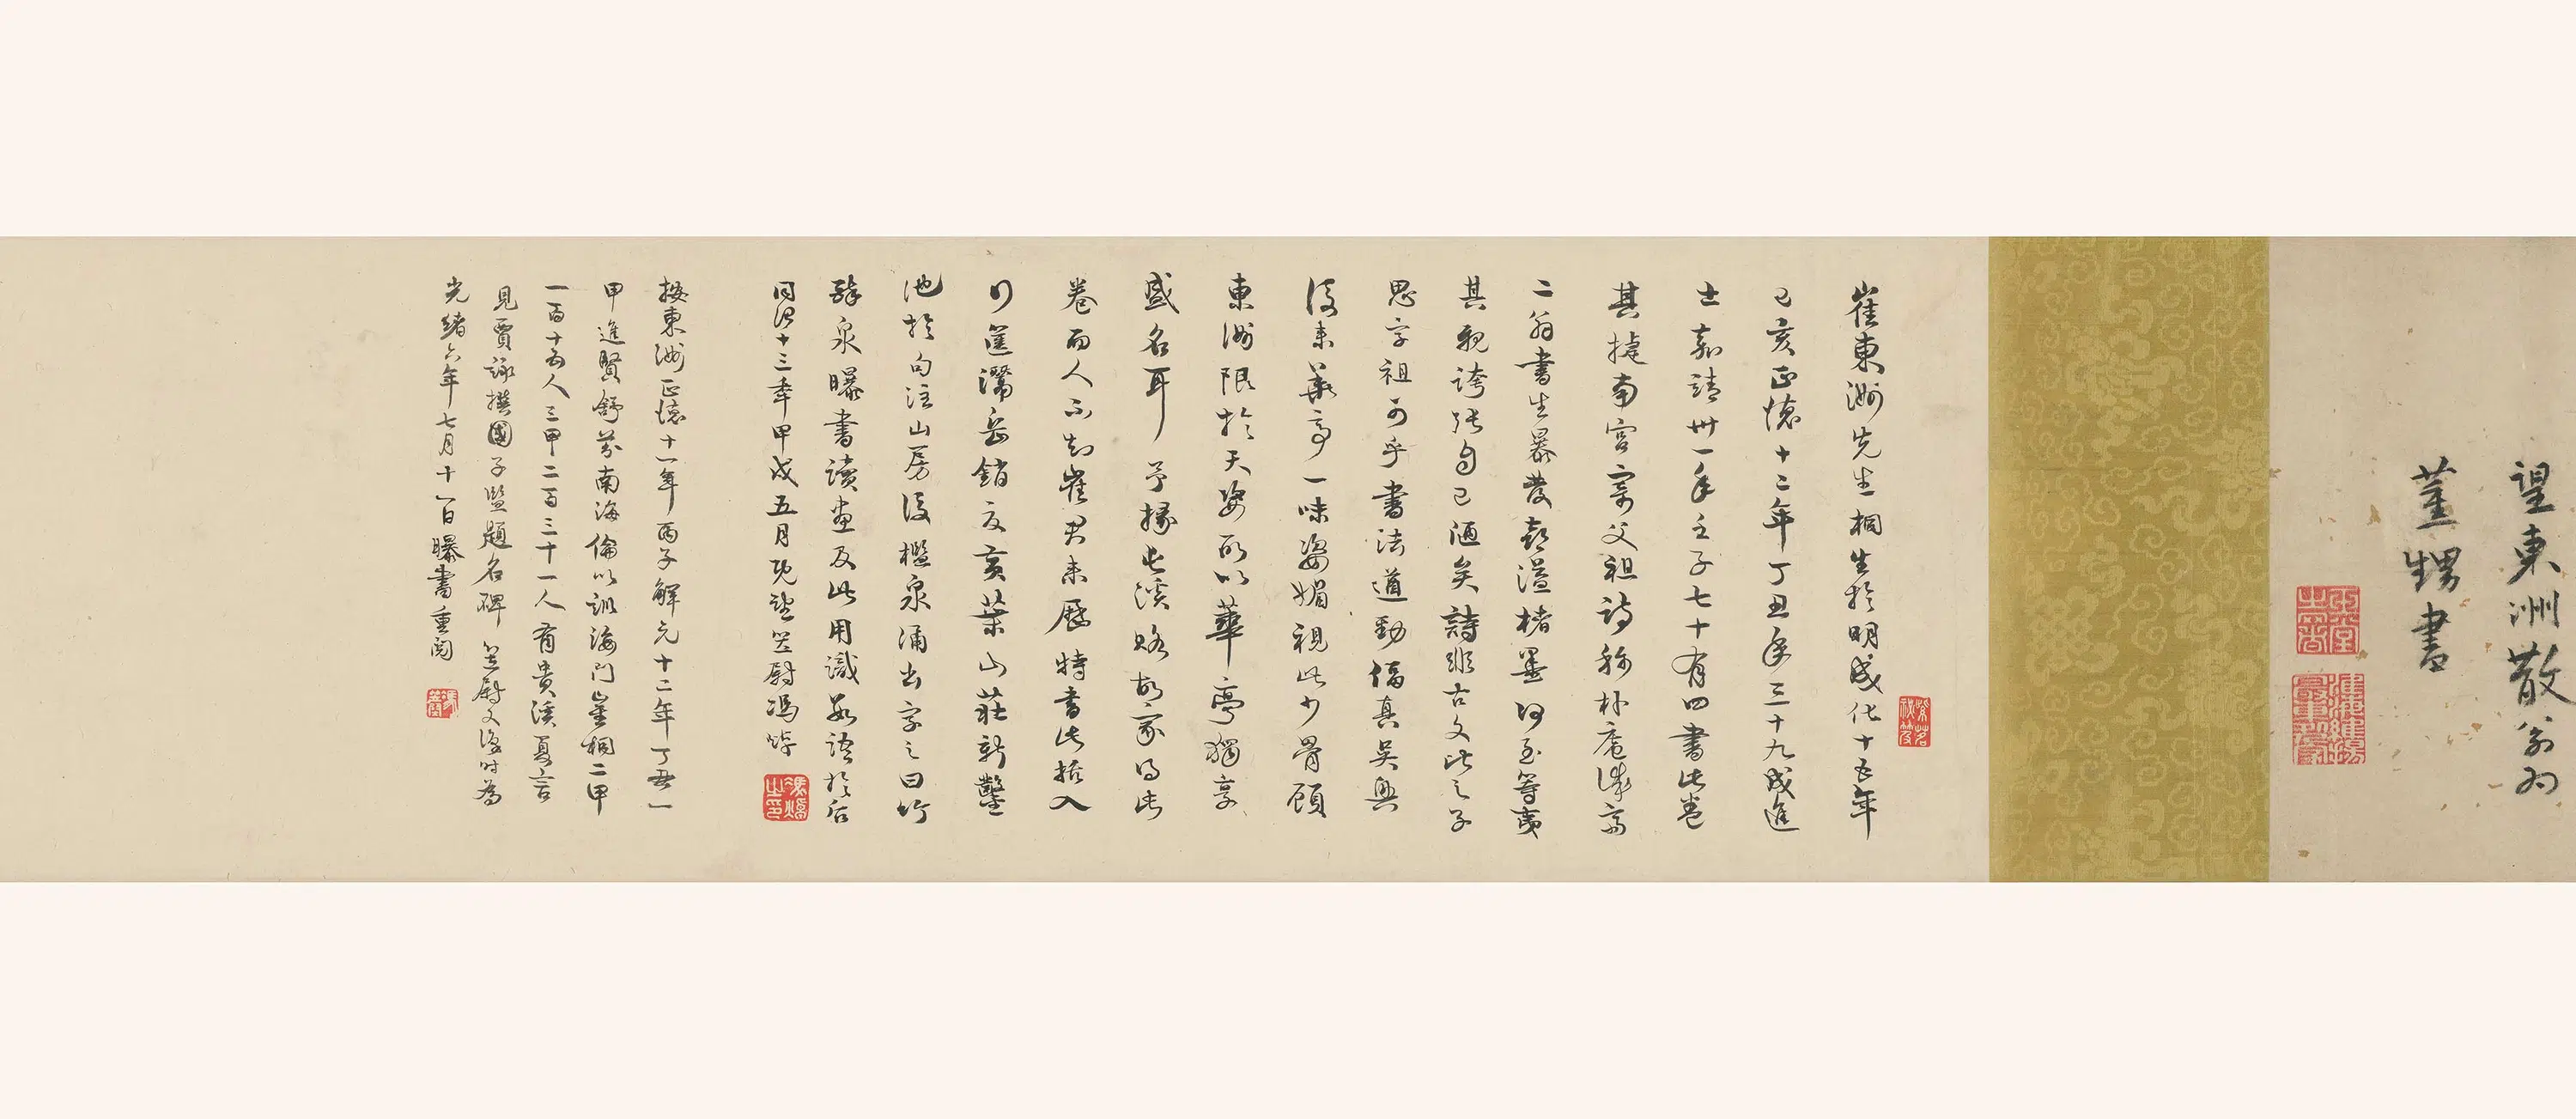 望東洲散翁為
董甥書
崔東洲先生桐生於明成化十五年
己亥正德十二年丁丑年三十九成進
士嘉靖卅一年壬子七十有四書此卷
其捷南宮寄父祖詩稱朴庵
二翁書生暴發喜溢楮墨何至等夷
其親誇張自己酒矣詩非古文此之子
思字祖可乎書法遒勁偪真吳興
後來華亭一味姿媚視此少骨顧
東洲限於天姿所以華亭獨享
盛名耳予掾長溪賂故家得此
卷而人不知崔君來歷特書此括入
行篋灊岳銷夏亥葉山莊新鑿
池於句注山房後檻泉涌出字之曰竹
醉泉曝書讀畫及此用識數語於后
同治十三年甲戌五月既望笠尉馮焯
按東洲正德十一年丙子解元十二年丁丑一
甲進賢舒芬南海倫以訓海門崔桐二甲
一百十五人三甲二百三十一人有貴溪夏言
見賈詠撰國子監題名碑 笠尉又識時為
光緒六年七月十八日曝書重閱